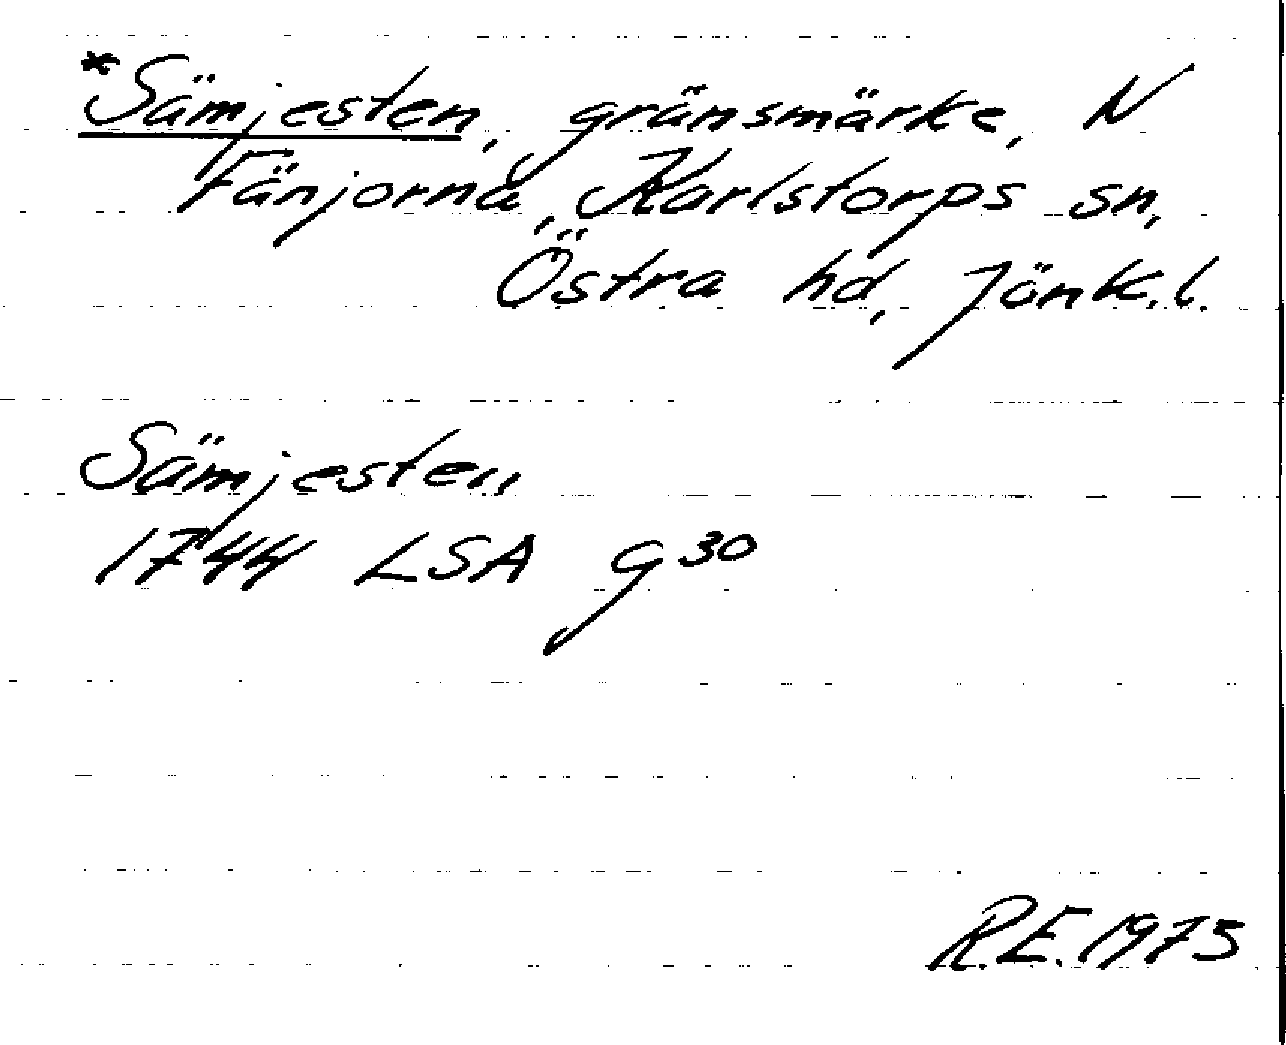 *Sämjesten, gränsmärke, N
Fänjorna, Karlstorps sn,
Östra hd, Jönk.l.
Sämjesten
1744 LSA g 30
R.E. 1975